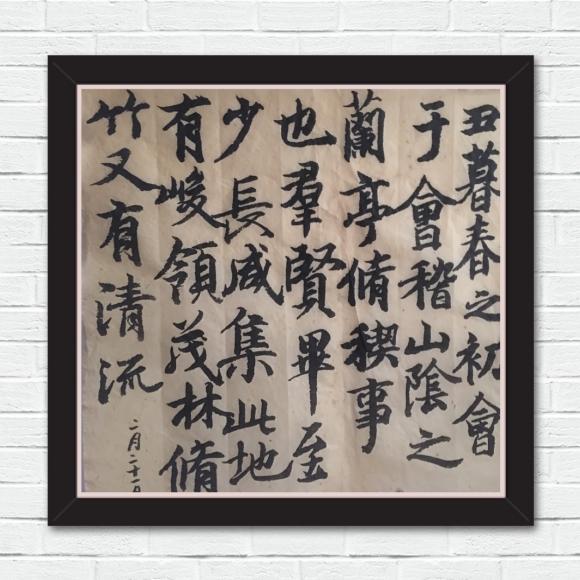 丑暮春之初會
于會稽山陰之
蘭亭脩稧事
也羣賢畢至
少長咸集此地
有峻領茂林脩
竹又有清流
二月二十一日